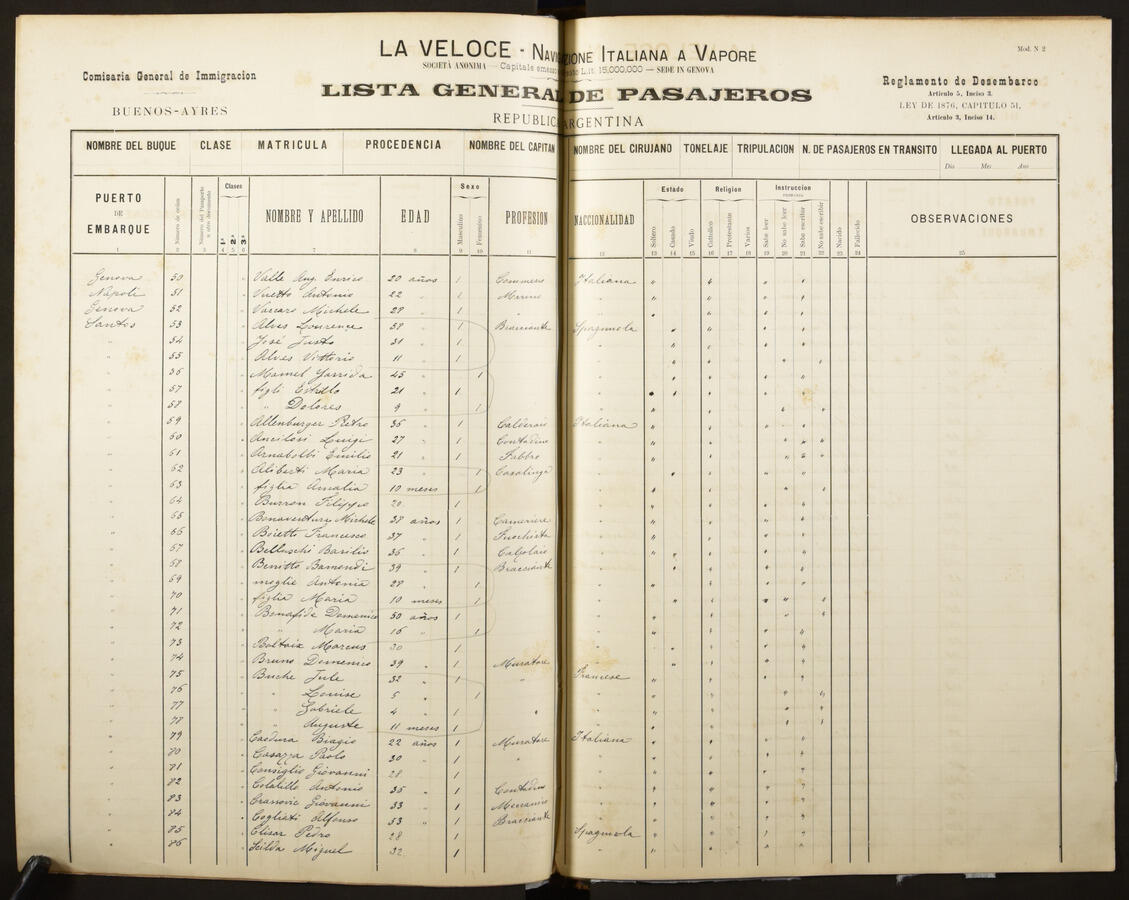 LA VELOCE - NAVIGAZIONE ITALIANA A VAPORE
SOCIETÀ ANONIMA — Capitale emesso L.it. 15,000,000 — SEDE IN GENOVA
Mod. N 2
Comisaria General de Immigracion
BUENOS-AYRES
LISTA GENERAL DE PASAJEROS
REPUBLICA ARGENTINA
Reglamento de Desembarco
Articulo 5, Inciso 3.
LEY DE 1876, CAPITULO 51,
Articulo 3, Inciso 14.
NOMBRE DEL BUQUE CLASE MATRICULA PROCEDENCIA NOMBRE DEL CAPITAN NOMBRE DEL CIRUJANO TONELAJE TRIPULACION N. DE PASAJEROS EN TRANSITO LLEGADA AL PUERTO
Dia Mes Ano
PUERTO DE EMBARQUE Número de orden Clases 1ª 2ª 3ª NOMBRE Y APELLIDO EDAD Sexo Masculino Femenino PROFESION NACCIONALIDAD Estado Soltero Casado Viudo Religion Cattolico Protestante Varios Instruccion Sabe leer No sabe leer Sabe escribir No sabe escribir Nacido Fallecido OBSERVACIONES
1 2 3 4 5 6 7 8 9 10 11 12 13 14 15 16 17 18 19 20 21 22 23 24 25
Genova 50 " Valle Ang. Enrico 20 años / Commerc Italiana
Napoli 51 " Viretto Antonio 22 " / Marino
Genova 52 " Vaccaro Michele 28 " / "
Santos 53 " Alves Lourenço 58 " / Bracciante Spagnuola
" 54 " José Justo 31 " / "
" 55 " Alves Vittorio 11 " / "
" 56 " Mamel Garrida 45 " / "
" 57 " figli Estrllo 21 " / "
" 58 " " Dolores 9 " / "
" 59 " Altenburger Pietro 36 " / Calderaio Italiana
" 60 " Ancilosi Luigi 27 " / Contadino "
" 61 " Arnaboldi Emilio 21 " / Fabbro "
" 62 " Aliberti Maria 23 / Casalinga "
" 63 " figlia Amalia 10 meses / "
" 64 " Burron Filippo 20 / "
" 65 " Bonaventura Michele 38 años / Cameriere "
" 66 " Boietto Francesco 37 " / Fuochista "
" 67 " Belluschi Basilio 36 " / Calzolaio "
" 68 " Benitto Bamondi 39 " / Bracciante "
" 69 " moglie Antonia 28 " / "
" 70 " figlia Maria 10 meses / "
" 71 " Bonafide Domenico 50 años / "
" 72 " " Maria 16 " / "
" 73 " Boltoix Marcus 30 / "
" 74 " Bruno Domenico 39 " / Muratore "
" 75 " Buche Jule 32 " / " Francese
" 76 " " Louise 5 " /
" 77 " " Gabriele 4 " / "
" 78 " " Auguste 11 meses /
" 79 " Caedura Biagio 22 años / Muratore Italiana
" 80 " Casazza Paolo 30 " / " "
" 81 " Consiglio Giovanni 28 " / "
" 82 " Colatillo Antonio 35 " / Contadino "
" 83 " Crasnovic Giovanni 33 " / Meccanico "
" 84 " Cogliati Alfonso 53 " / Bracciante "
" 85 " Elisar Pedro 28 / Spagnuola
" 86 " Scilda Miguel 32 / "